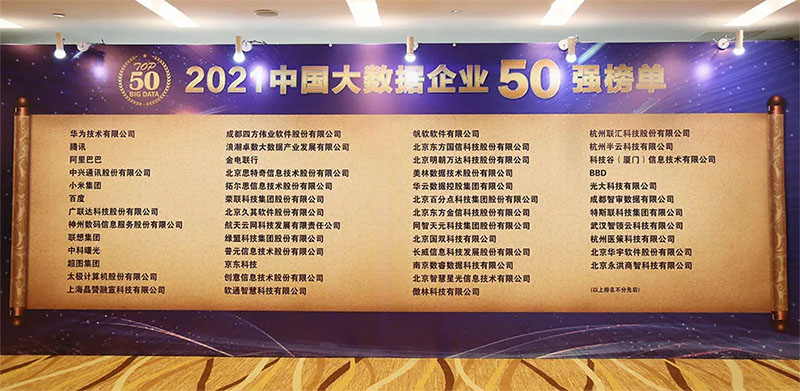 TOP
50
BIG DATA
2021中国大数据企业50强榜单
华为技术有限公司
腾讯
阿里巴巴
中兴通讯股份有限公司
小米集团
百度
广联达科技股份有限公司
神州数码信息服务股份有限公司
联想集团
中科曙光
超图集团
太极计算机股份有限公司
上海晶赞融宣科技有限公司
成都四方伟业软件股份有限公司
浪潮卓数大数据产业发展有限公司
金电联行
北京思特奇信息技术股份有限公司
拓尔思信息技术股份有限公司
荣联科技集团股份有限公司
北京久其软件股份有限公司
航天云网科技发展有限责任公司
绿盟科技集团股份有限公司
普元信息技术股份有限公司
京东科技
创意信息技术股份有限公司
软通智慧科技有限公司
帆软软件有限公司
北京东方国信科技股份有限公司
北京明朝万达科技股份有限公司
美林数据技术股份有限公司
华云数据控股集团有限公司
北京百分点科技集团股份有限公司
北京东方金信科技股份有限公司
网智天元科技集团股份有限公司
北京国双科技有限公司
长威信息科技发展股份有限公司
南京数睿数据科技有限公司
北京智慧星光信息技术股份有限公司
傲林科技有限公司
杭州联汇科技股份有限公司
杭州半云科技有限公司
科技谷（厦门）信息技术有限公司
BBD
光大科技有限公司
成都智审数据有限公司
特斯联科技集团有限公司
武汉智领云科技有限公司
杭州医策科技有限公司
北京华宇软件股份有限公司
北京永洪商智科技有限公司
(以上排名不分先后)